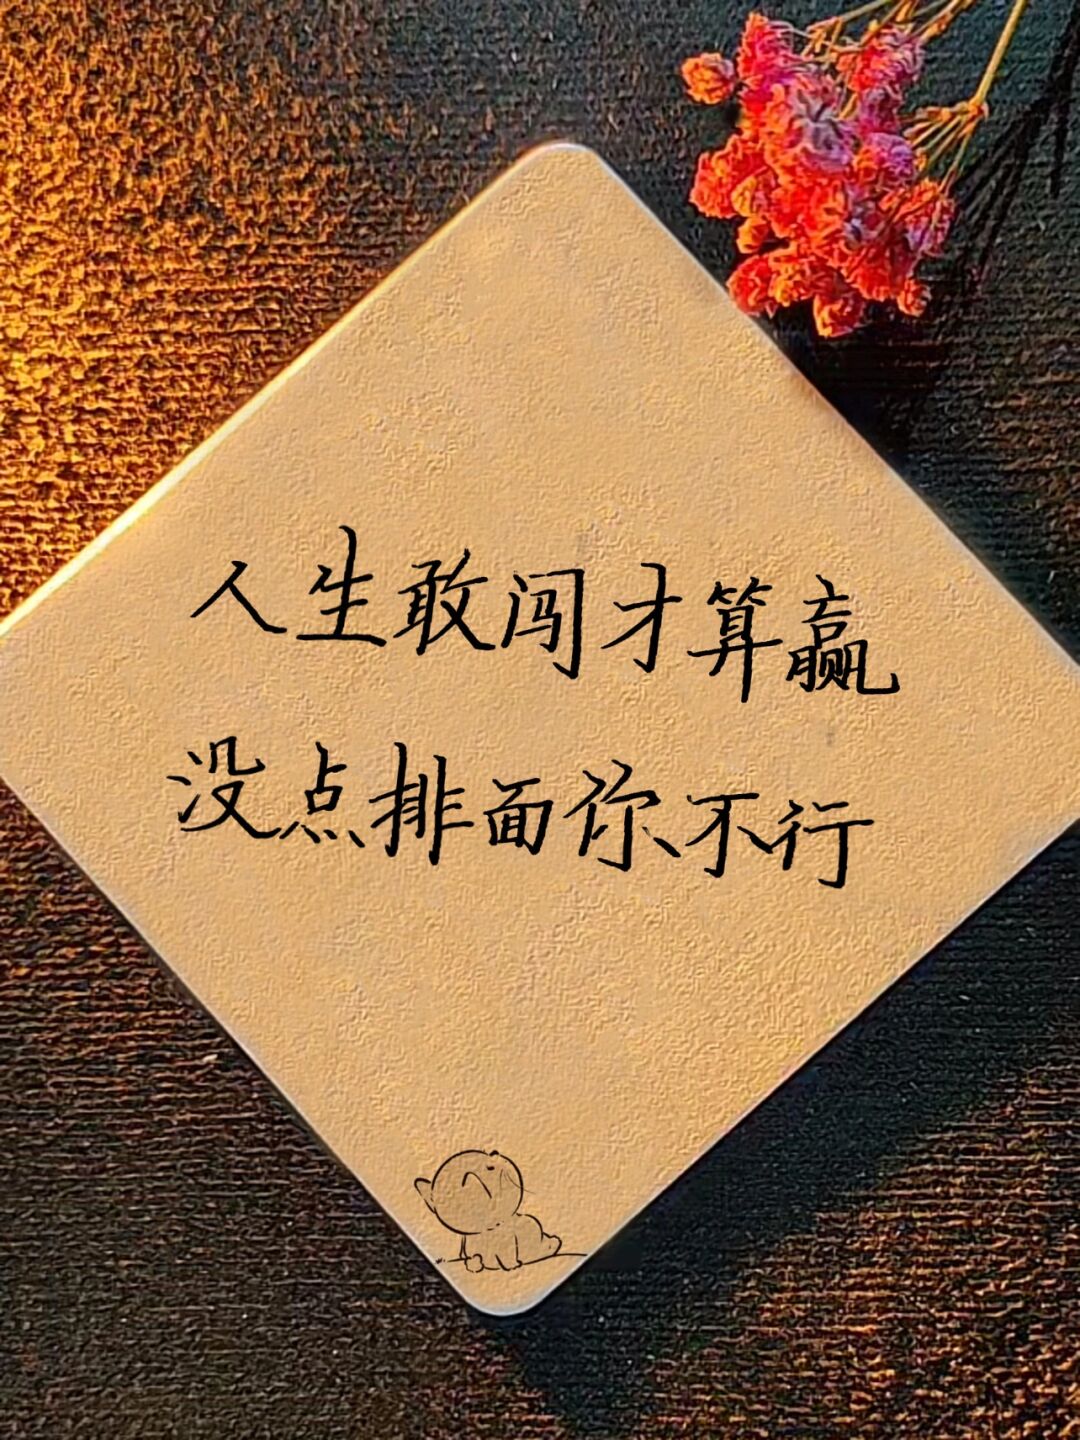 人生敢闯才算赢
没点排面你不行